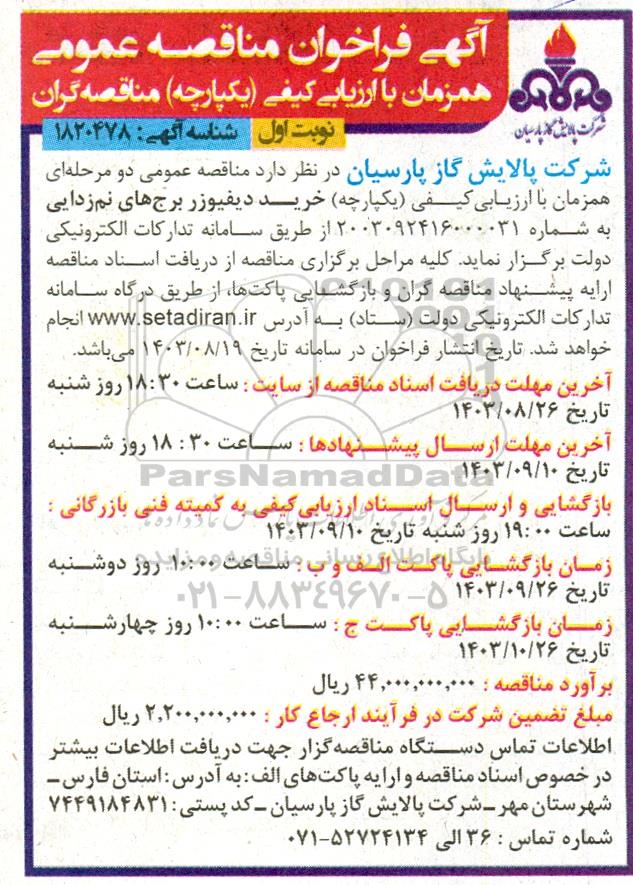 آگهی فراخوان مناقصه عمومی
همزمان با ارزیابی کیفی (یکپارچه) مناقصه گران
شرکت پالایش گاز پارسیان
نوبت اول
شناسه آگهی: ۱۸۲۰۴۷۸
شرکت پالایش گاز پارسیان در نظر دارد مناقصه عمومی دو مرحله‌ای
همزمان با ارزیابی کیفی (یکپارچه) خرید دیفیوزر برج‌های نم‌زدایی
به شماره ۲۰۰۳۰۹۲۴۱۶۰۰۰۰۳۱ از طریق سامانه تدارکات الکترونیکی
دولت برگزار نماید. کلیه مراحل برگزاری مناقصه از دریافت اسناد مناقصه
ارایه پیشنهاد مناقصه گران و بازگشایی پاکت‌ها، از طریق درگاه سامانه
تدارکات الکترونیکی دولت (ستاد) به آدرس www.setadiran.ir انجام
خواهد شد. تاریخ انتشار فراخوان در سامانه تاریخ ۱۴۰۳/۰۸/۱۹ می‌باشد.
آخرین مهلت دریافت اسناد مناقصه از سایت: ساعت ۱۸:۳۰ روز شنبه
تاریخ ۱۴۰۳/۰۸/۲۶
آخرین مهلت ارسال پیشنهادها: ساعت ۱۸:۳۰ روز شنبه
تاریخ ۱۴۰۳/۰۹/۱۰
بازگشایی و ارسال اسناد ارزیابی کیفی به کمیته فنی بازرگانی:
ساعت ۱۹:۰۰ روز شنبه تاریخ ۱۴۰۳/۰۹/۱۰
زمان بازگشایی پاکت الف و ب: ساعت ۱۰:۰۰ روز دوشنبه
تاریخ ۱۴۰۳/۰۹/۲۶
زمان بازگشایی پاکت ج: ساعت ۱۰:۰۰ روز چهارشنبه
تاریخ ۱۴۰۳/۱۰/۲۶
برآورد مناقصه: ۴۴,۰۰۰,۰۰۰,۰۰۰ ریال
مبلغ تضمین شرکت در فرآیند ارجاع کار: ۲,۲۰۰,۰۰۰,۰۰۰ ریال
اطلاعات تماس دستگاه مناقصه‌گزار جهت دریافت اطلاعات بیشتر
در خصوص اسناد مناقصه و ارایه پاکت‌های الف: به آدرس: استان فارس ـ
شهرستان مهر ـ شرکت پالایش گاز پارسیان ـ کد پستی: ۷۴۴۹۱۸۴۸۳۱
شماره تماس: ۳۶ الی ۵۲۷۲۴۱۳۴-۰۷۱
ParsNamadData
پایگاه اطلاع رسانی مناقصه و مزایده
۰۲۱-۸۸۳۴۹۶۷۰-۵